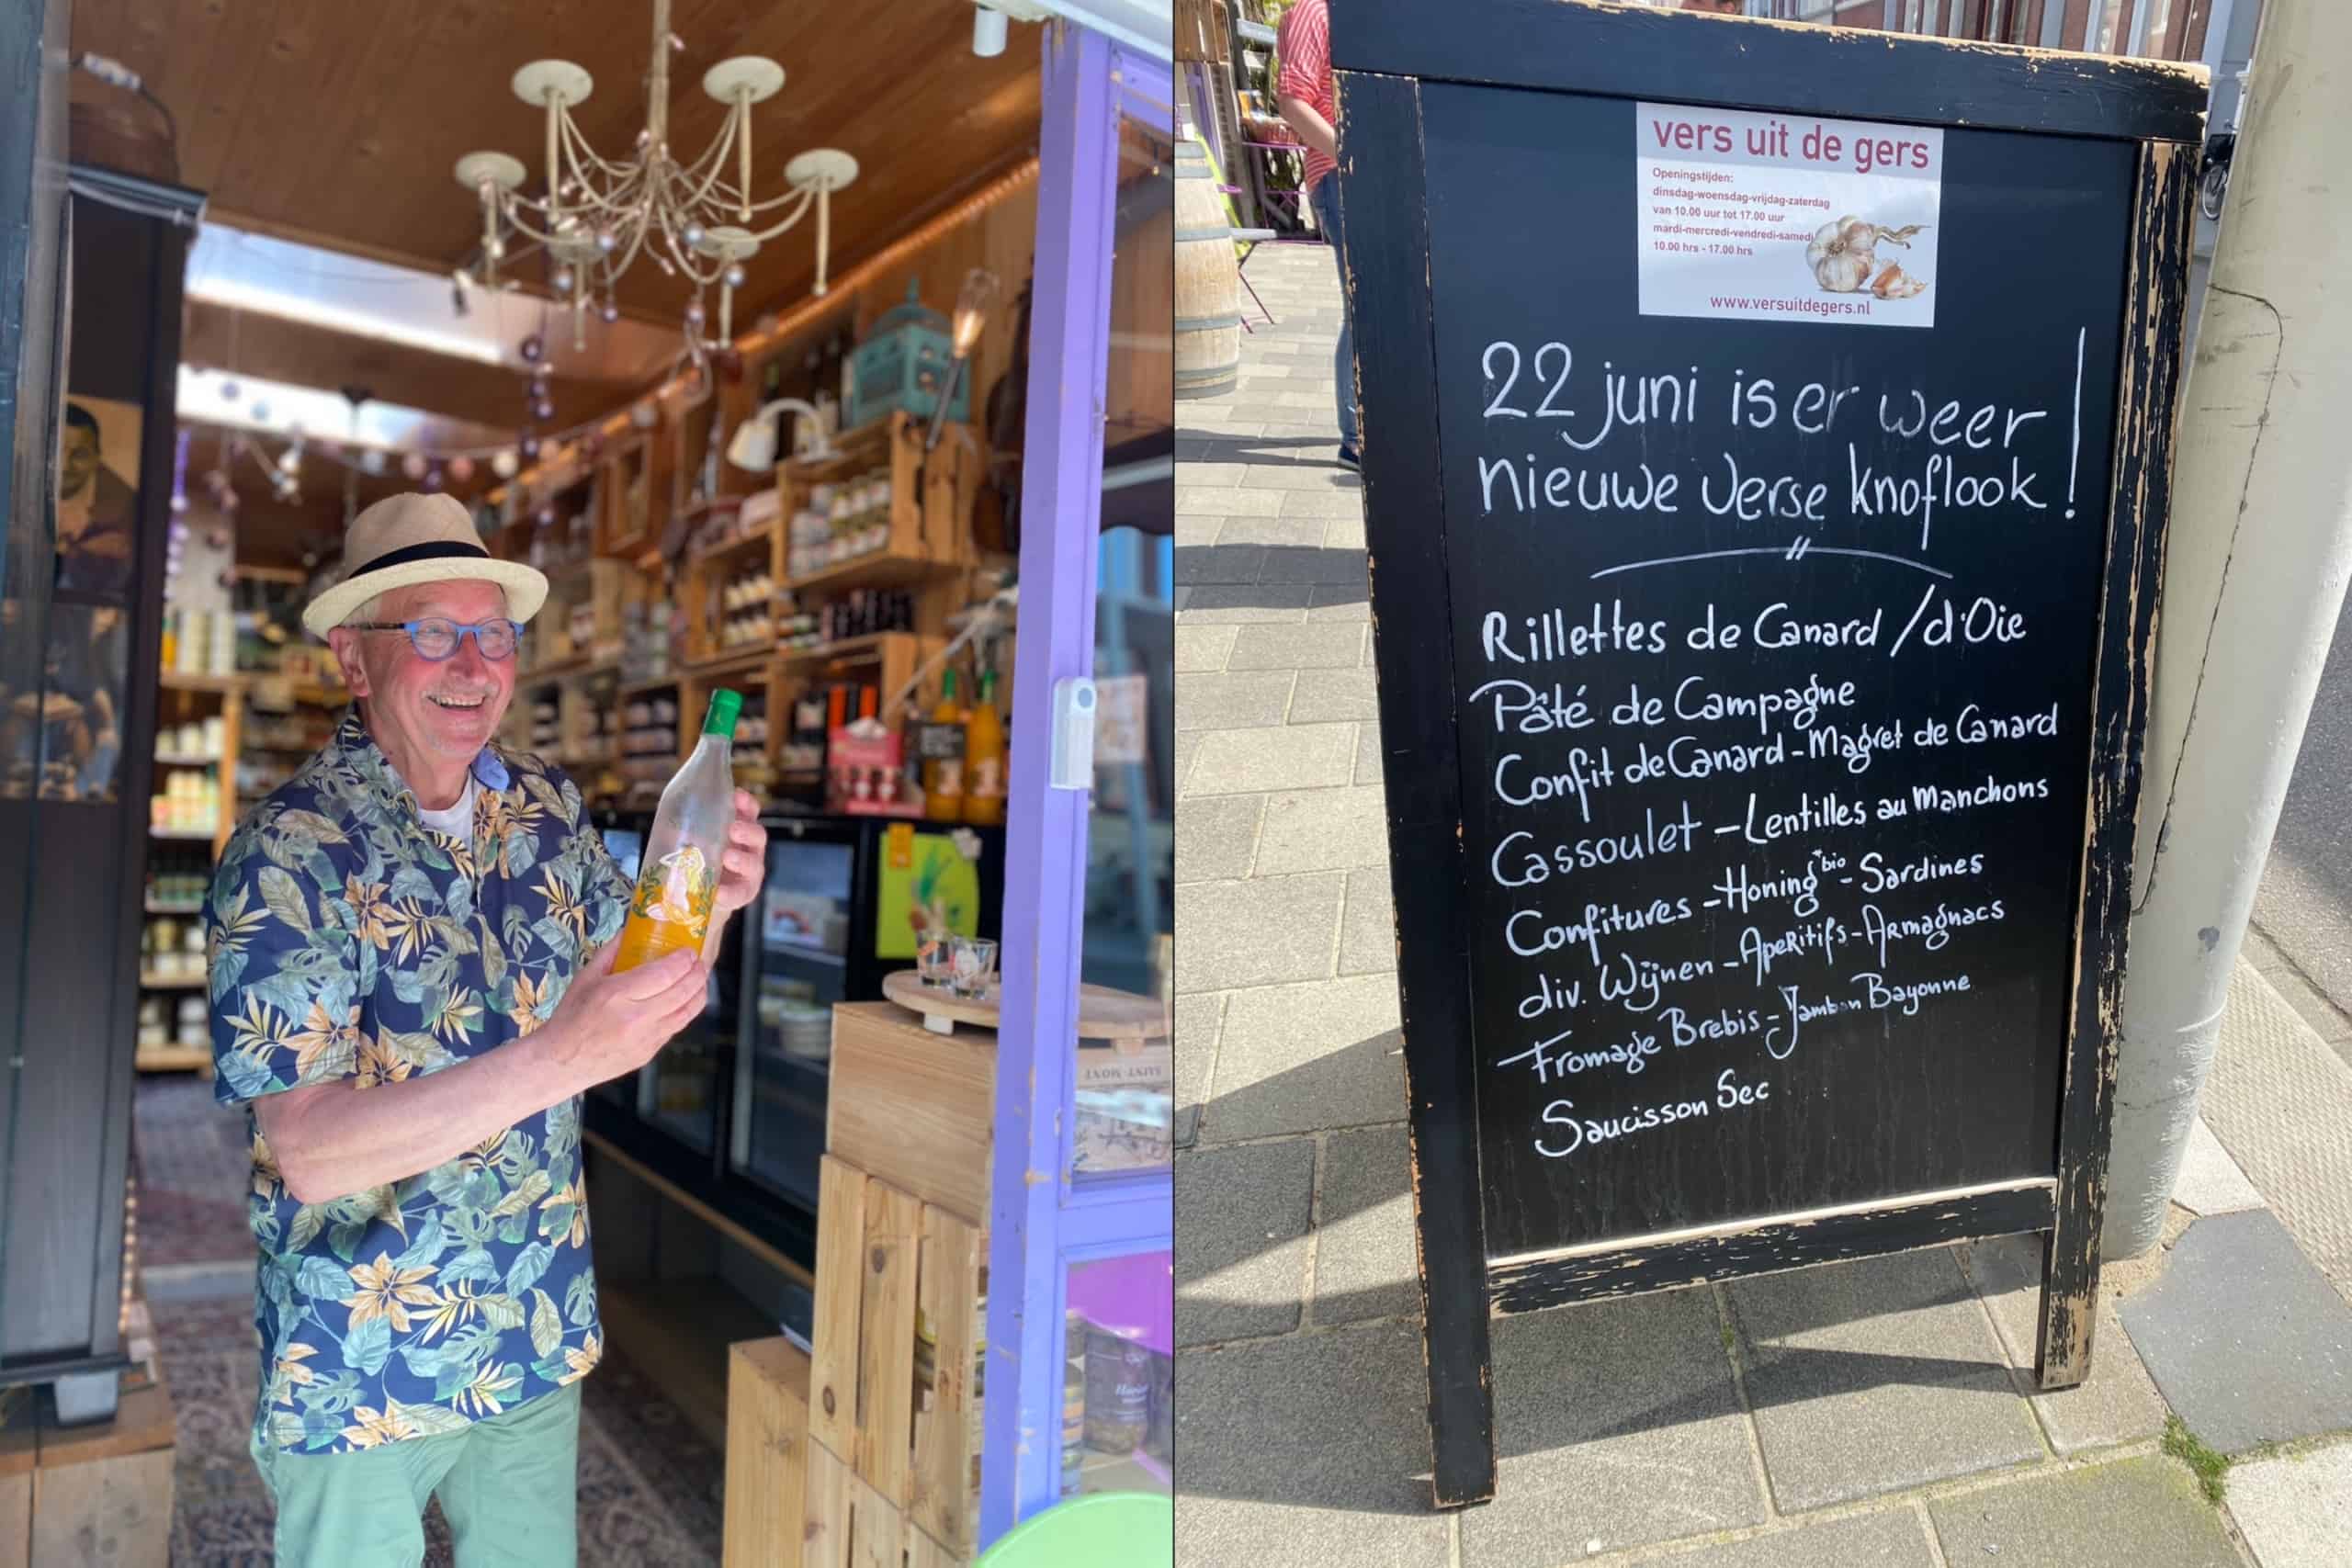 SAINT MONT
vers uit de gers
Openingstijden:
dinsdag-woensdag-vrijdag-zaterdag
van 10.00 uur tot 17.00 uur
mardi-mercredi-vendredi-samedi
10.00 hrs - 17.00 hrs
www.versuitdegers.nl
22 juni is er weer
nieuwe verse knoflook!
Rillettes de Canard / d'Oie
Pâté de Campagne
Confit de Canard - Magret de Canard
Cassoulet - Lentilles au Manchons
Confitures - Honing bio - Sardines
div. Wijnen - Aperitifs - Armagnacs
Fromage Brebis - Jambon Bayonne
Saucisson Sec